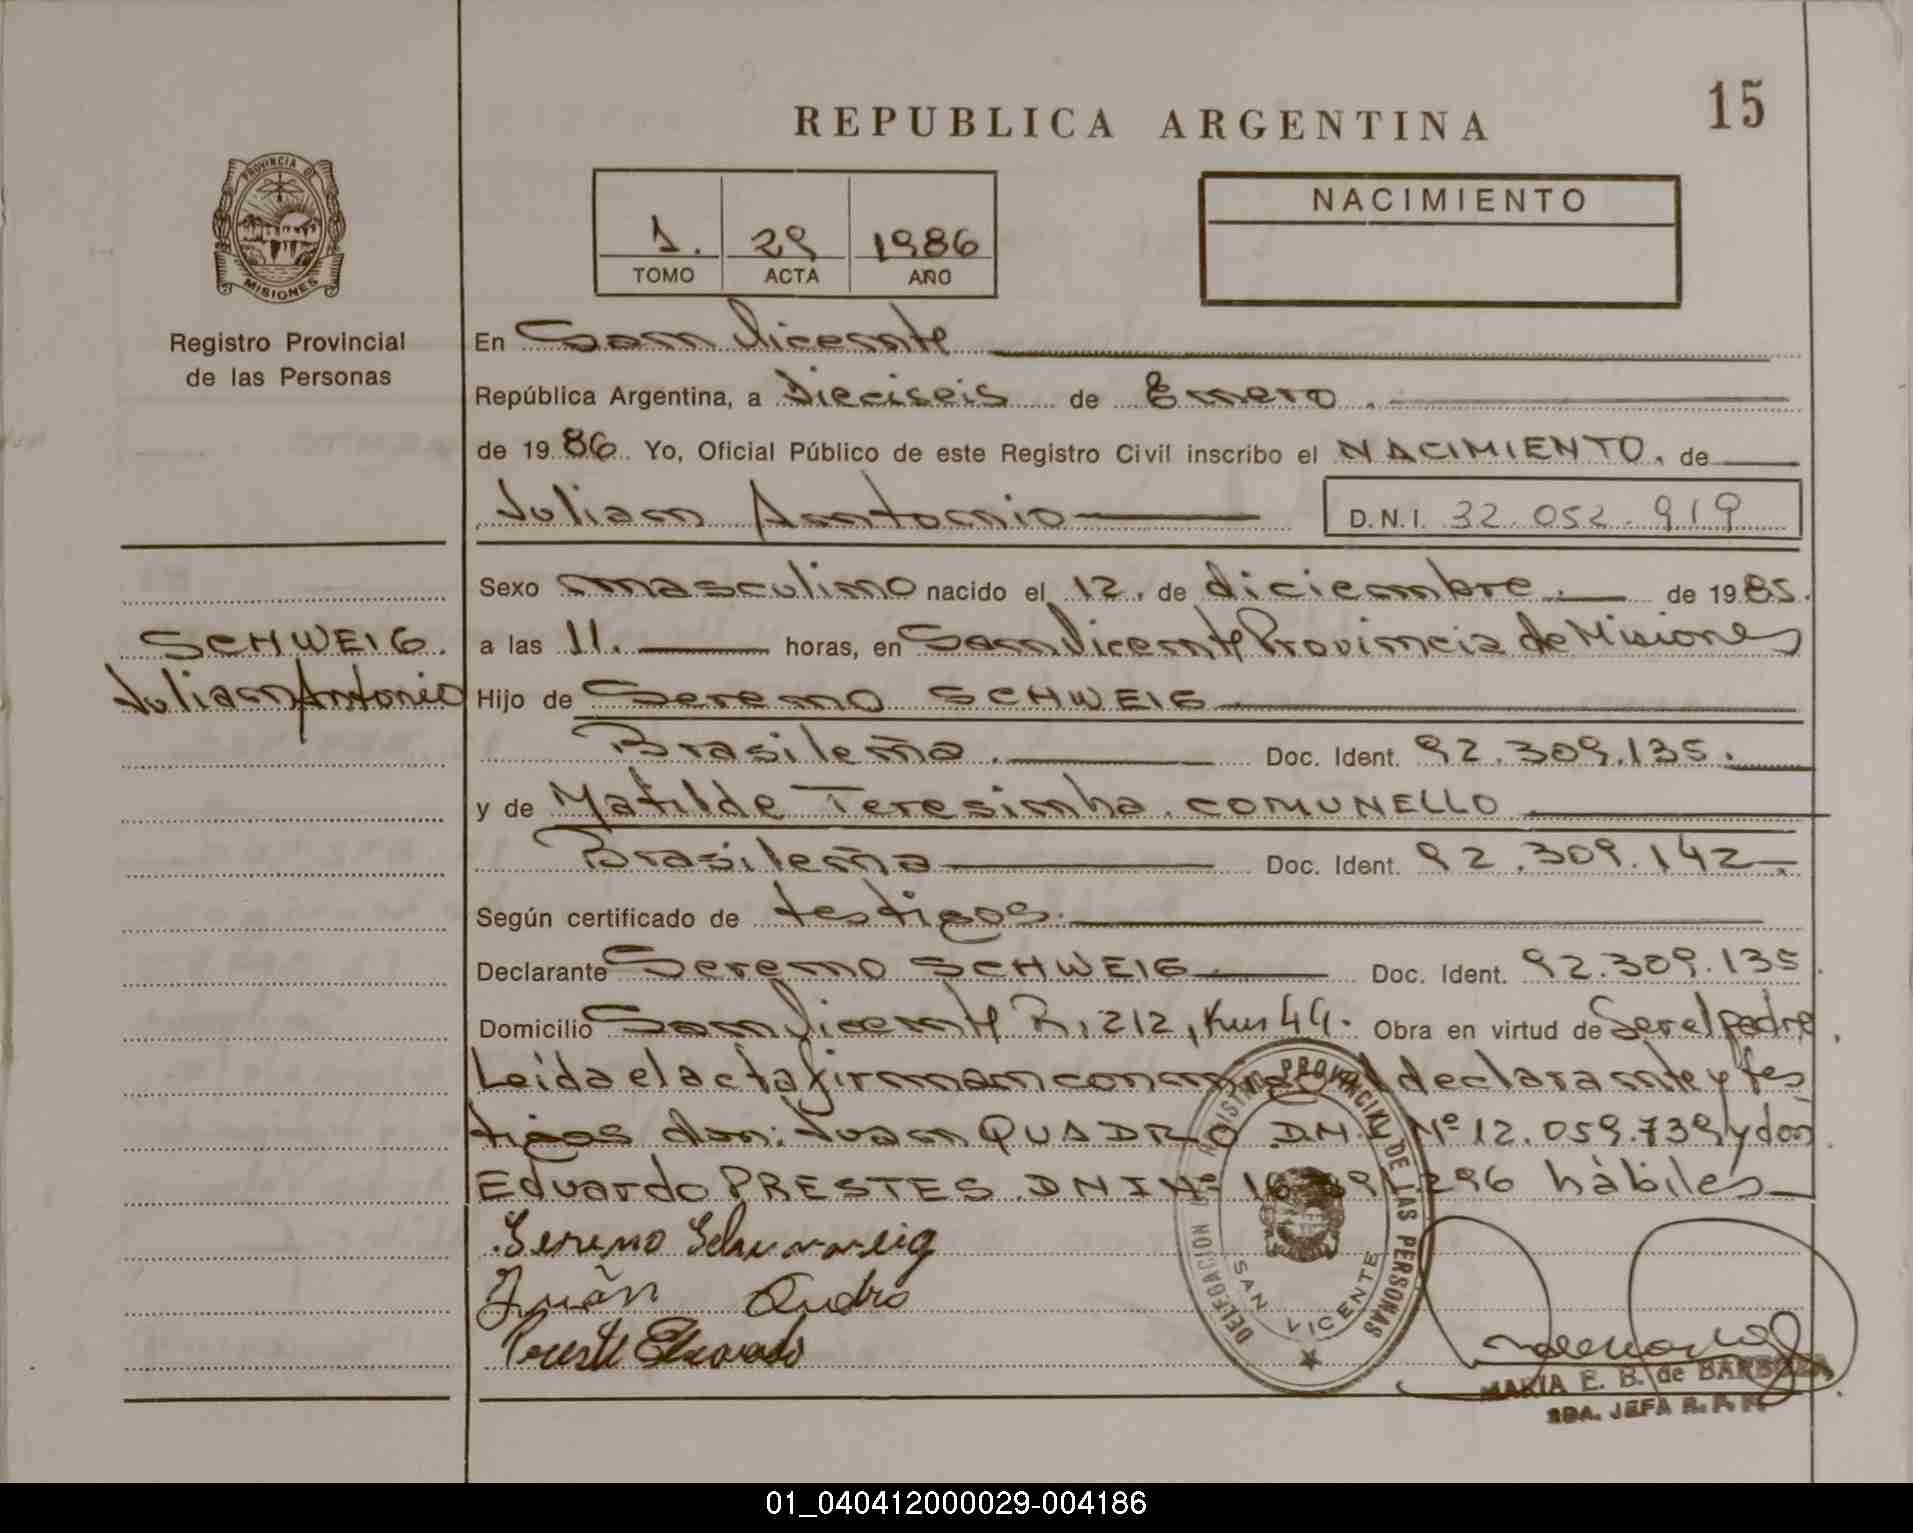 15
REPUBLICA ARGENTINA
PROVINCIA DE
MISIONES
Registro Provincial
de las Personas
1. 29 1986
TOMO ACTA AÑO
NACIMIENTO
En San Vicente
República Argentina, a Dieciseis de Enero.
de 1986. Yo, Oficial Público de este Registro Civil inscribo el NACIMIENTO. de
Julian Antonio
D.N.I. 32.052.919
Sexo masculino nacido el 12. de diciembre. de 1985.
SCHWEIG.
Julian Antonio
a las 11. horas, en San Vicente Provincia de Misiones
Hijo de Sereno SCHWEIG
Brasileña. Doc. Ident. 92.309.135.
y de Matilde Teresinha. COMUNELLO
Brasileña Doc. Ident. 92.309.142
Según certificado de testigos.
Declarante Sereno SCHWEIG Doc. Ident. 92.309.135.
Domicilio San Vicente R. 212, Km 44. Obra en virtud de Ser el padre,
Leida el acta firman conmigo el declarante y tes
tigos don: Juan QUADRO D.N.I. Nº 12.059.739 y don
Eduardo PRESTES DNI Nº hábiles
Sereno Schweig
Juãn Qudro
Preste Eduardo
DELEGACION REGISTRO PROVINCIAL DE LAS PERSONAS
SAN VICENTE
MARIA E. B. de BARBOZA
JEFA R. P. P.
01_040412000029-004186